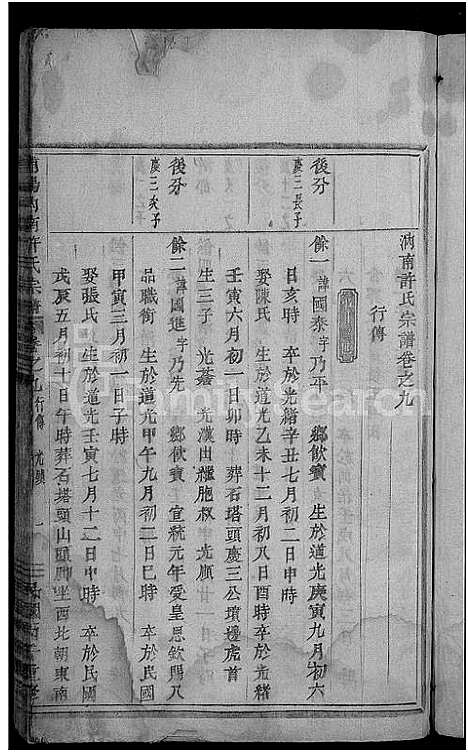 汭南許氏宗譜卷之九
行傳
後分
慶三長子
餘一諱國泰字乃平　鄉飲賓　生於道光庚寅九月初六
日亥時　卒於光緒辛丑七月初二日申時
娶陳氏　生於道光乙未十二月初八日酉時卒於光緒
壬寅六月初一日卯時　葬石塔頭慶三公墳邊虎首
生三子　光蓋　光漢出繼胞叔　光順
後分
慶三次子
餘二諱國進字乃先　鄉飲賓　宣統元年愛皇恩欽賜八
品職銜　生於道光甲午九月初二日巳時　卒於民國
甲寅三月初一日子時
娶張氏　生於道光壬寅七月十二日申時　卒於民國
戊辰五月初十日午時葬石塔頭山頭脚坐西北朝東南
南許氏宗譜卷之九行傳
FamilySearch